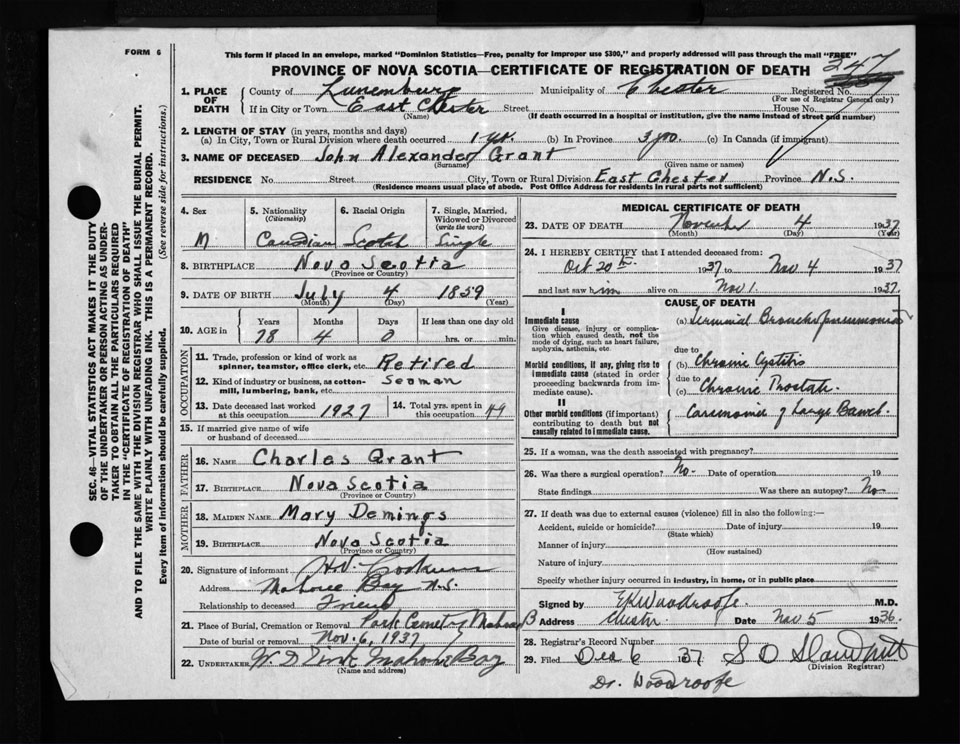 FORM 6
This form if placed in an envelope, marked "Dominion Statistics—Free, penalty for improper use $300," and properly addressed will pass through the mail "FREE"
PROVINCE OF NOVA SCOTIA—CERTIFICATE OF REGISTRATION OF DEATH 347
1. PLACE OF DEATH County of Lunenburg Municipality of Chester Registered No.
(For use of Registrar General only)
If in City or Town East Chester Street House No.
(Name) (If death occurred in a hospital or institution, give the name instead of street and number)
2. LENGTH OF STAY (in years, months and days)
(a) In City, Town or Rural Division where death occurred 1 yr. (b) In Province (c) In Canada (if immigrant)
3. NAME OF DECEASED John Alexander Grant
(Surname) (Given name or names)
RESIDENCE No. Street City, Town or Rural Division East Chester Province N.S.
(Residence means usual place of abode. Post Office Address for residents in rural parts not sufficient)
4. Sex 5. Nationality (Citizenship) 6. Racial Origin 7. Single, Married, Widowed or Divorced (write the word)
M Canadian Scotch Single
8. BIRTHPLACE Nova Scotia
(Province or Country)
9. DATE OF BIRTH July 4 1859
(Month) (Day) (Year)
10. AGE in Years Months Days If less than one day old
78 4 0 hrs. or min.
OCCUPATION
11. Trade, profession or kind of work as spinner, teamster, office clerk, etc. Retired
12. Kind of industry or business, as cotton-mill, lumbering, bank, etc. Seaman
13. Date deceased last worked at this occupation 1927 14. Total yrs. spent in this occupation 49
15. If married give name of wife or husband of deceased
FATHER
16. NAME Charles Grant
17. BIRTHPLACE Nova Scotia
(Province or Country)
MOTHER
18. MAIDEN NAME Mary Demings
19. BIRTHPLACE Nova Scotia
(Province or Country)
20. Signature of informant H.V.
Address Mahone Bay N.S.
Relationship to deceased Friend
21. Place of Burial, Cremation or Removal Park Cemetry Mahone B
Date of burial or removal Nov. 6, 1937
22. UNDERTAKER Mahone Bay
(Name and address)
MEDICAL CERTIFICATE OF DEATH
23. DATE OF DEATH November 4 1937
(Month) (Day) (Year)
24. I HEREBY CERTIFY that I attended deceased from:
Oct 20th 1937 to Nov 4 1937
and last saw him alive on Nov 1. 1937.
CAUSE OF DEATH
I
Immediate cause (a) Terminal Bronchopneumonia
Give disease, injury or complication which caused death, not the mode of dying, such as heart failure, asphyxia, asthenia, etc.
due to
Morbid conditions, if any, giving rise to immediate cause (stated in order proceeding backwards from immediate cause). (b) Chronic Cystitis
due to
(c) Chronic Prostate
II
Other morbid conditions (if important) contributing to death but not causally related to immediate cause. Carcinomia of Large Bowel.
25. If a woman, was the death associated with pregnancy?
26. Was there a surgical operation? No. Date of operation 19
State findings Was there an autopsy? No
27. If death was due to external causes (violence) fill in also the following:—
Accident, suicide or homicide? Date of injury 19
(State which)
Manner of injury
(How sustained)
Nature of injury
Specify whether injury occurred in industry, in home, or in public place
Signed by E K Woodroofe. M.D.
Address Chester Date Nov 5 1936.
28. Registrar's Record Number
29. Filed Dec 6 37 S D
(Division Registrar)
Dr. Woodroofe
SEC. 46—VITAL STATISTICS ACT MAKES IT THE DUTY
OF THE UNDERTAKER OR PERSON ACTING AS UNDER-
TAKER TO OBTAIN ALL THE PARTICULARS REQUIRED
IN THE "CERTIFICATE OF REGISTRATION OF DEATH"
AND TO FILE THE SAME WITH THE DIVISION REGISTRAR WHO SHALL ISSUE THE BURIAL PERMIT.
WRITE PLAINLY WITH UNFADING INK. THIS IS A PERMANENT RECORD.
Every item of information should be carefully supplied. (See reverse side for instructions.)